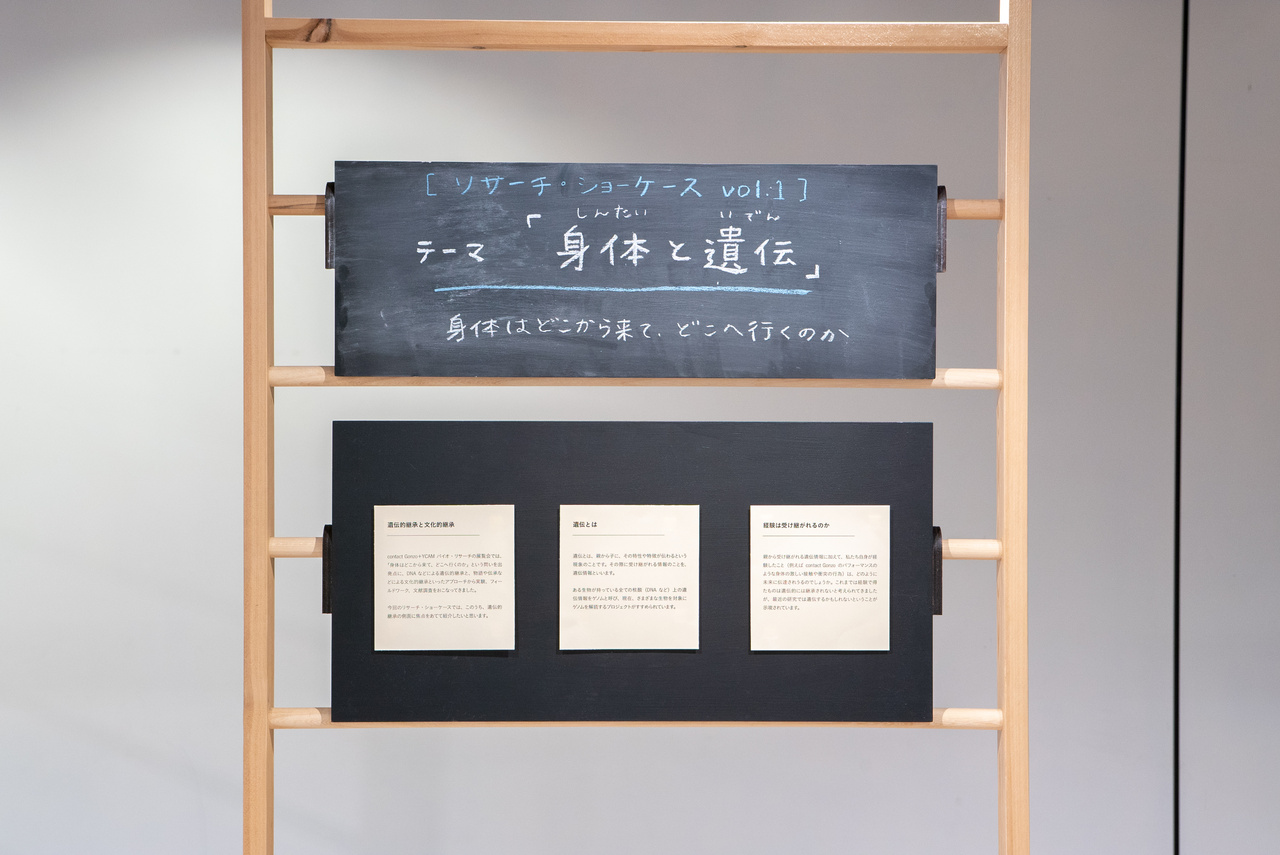 [ リサーチ・ショーケース vol.1 ]
しんたい いでん
テーマ 「身体と遺伝」
身体はどこから来て、どこへ行くのか
遺伝的継承と文化的継承
contact Gonzo+YCAM バイオ・リサーチの展覧会では、
「身体はどこから来て、どこへ行くのか」という問いを出
発点に、DNA などによる遺伝的継承と、物語や伝承な
どによる文化的継承といったアプローチから実験、フィー
ルドワーク、文献調査をおこなってきました。
今回のリサーチ・ショーケースでは、このうち、遺伝的
継承の側面に焦点をあてて紹介したいと思います。
遺伝とは
遺伝とは、親から子に、その特性や特徴が伝わるという
現象のことです。その際に受け継がれる情報のことを、
遺伝情報といいます。
ある生物が持っている全ての核酸（DNA など）上の遺
伝情報をゲノムと呼び、現在、さまざまな生物を対象に
ゲノムを解読するプロジェクトがすすめられています。
経験は受け継がれるのか
親から受け継がれる遺伝情報に加えて、私たち自身が経
験したこと（例えば contact Gonzo のパフォーマンスの
ような身体の激しい接触や衝突の行為）は、どのように
未来に伝達されうるのでしょうか。これまでは経験で得
たものは遺伝的には継承されないと考えられてきました
が、最近の研究では遺伝するかもしれないということが
示唆されています。